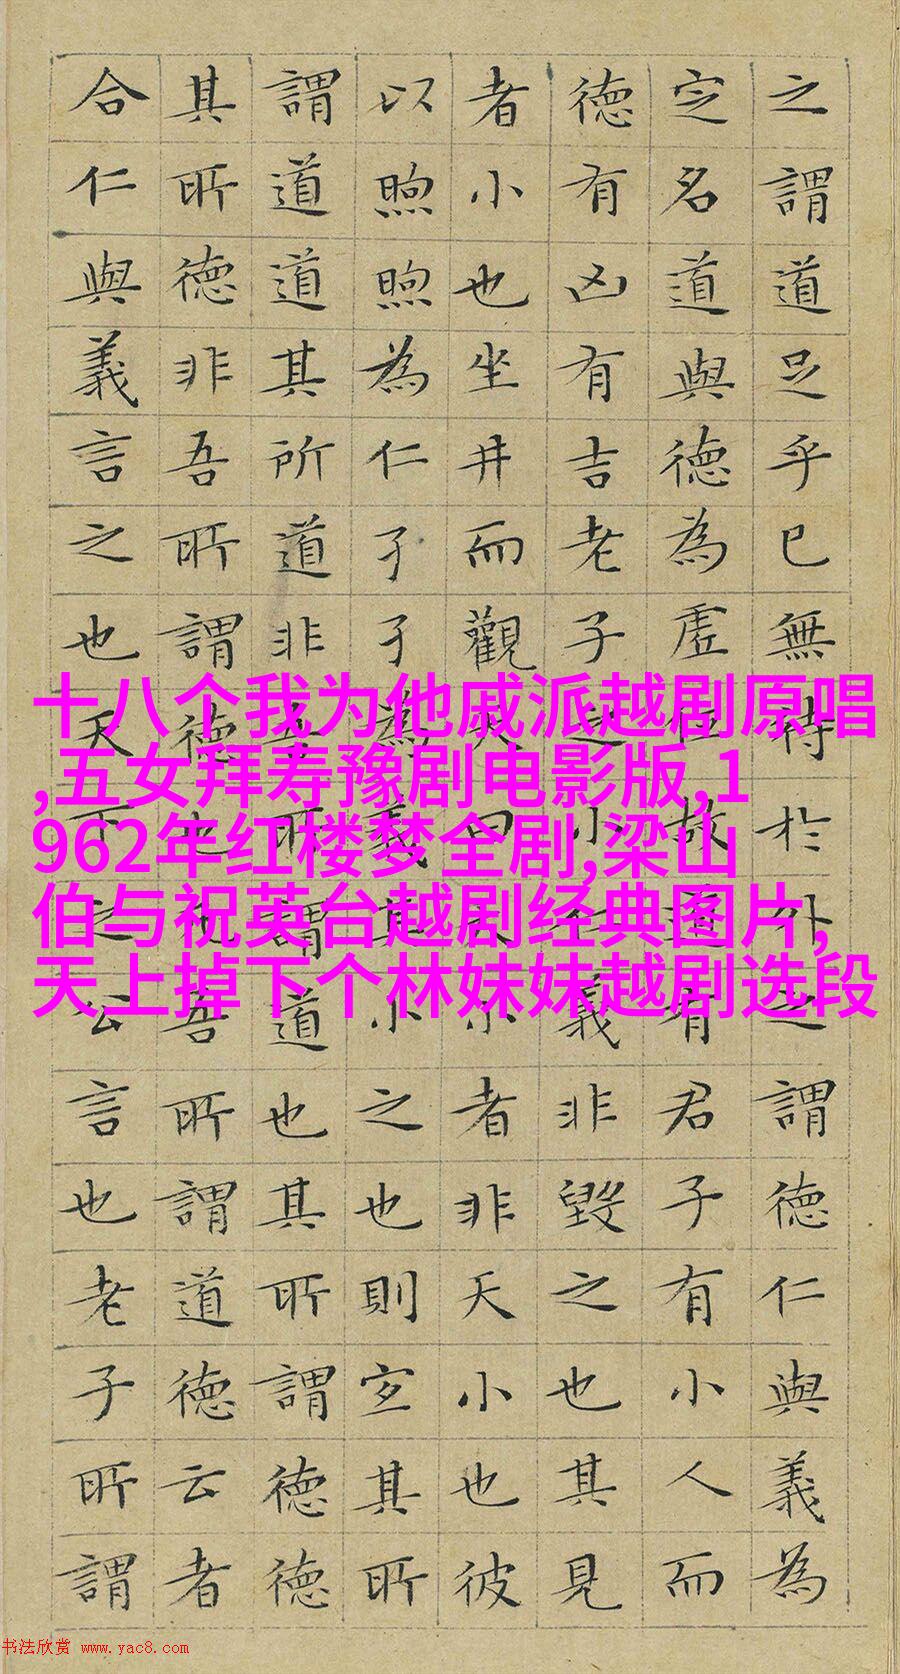 之謂道足乎已無待於外之謂德仁與義為
定名道與德為虛位故道有君子有小人而
德有凶有吉老子之小仁義非毀之也其見
者小也坐井而觀天曰天小者非天小也彼
以煦煦為仁孑孑為義其小之也則宜其所
謂道道其所道非吾所謂道也其所謂德德
其所德非吾所謂德也凡吾所謂道德云者
合仁與義言之也天下之公言也老子所謂
十八个我为他戚派越剧原唱
,五女拜寿豫剧电影版,1
962年红楼梦全剧,梁山
伯与祝英台越剧经典图片,
天上掉下个林妹妹越剧选段
书法欣赏 www.yac8.com